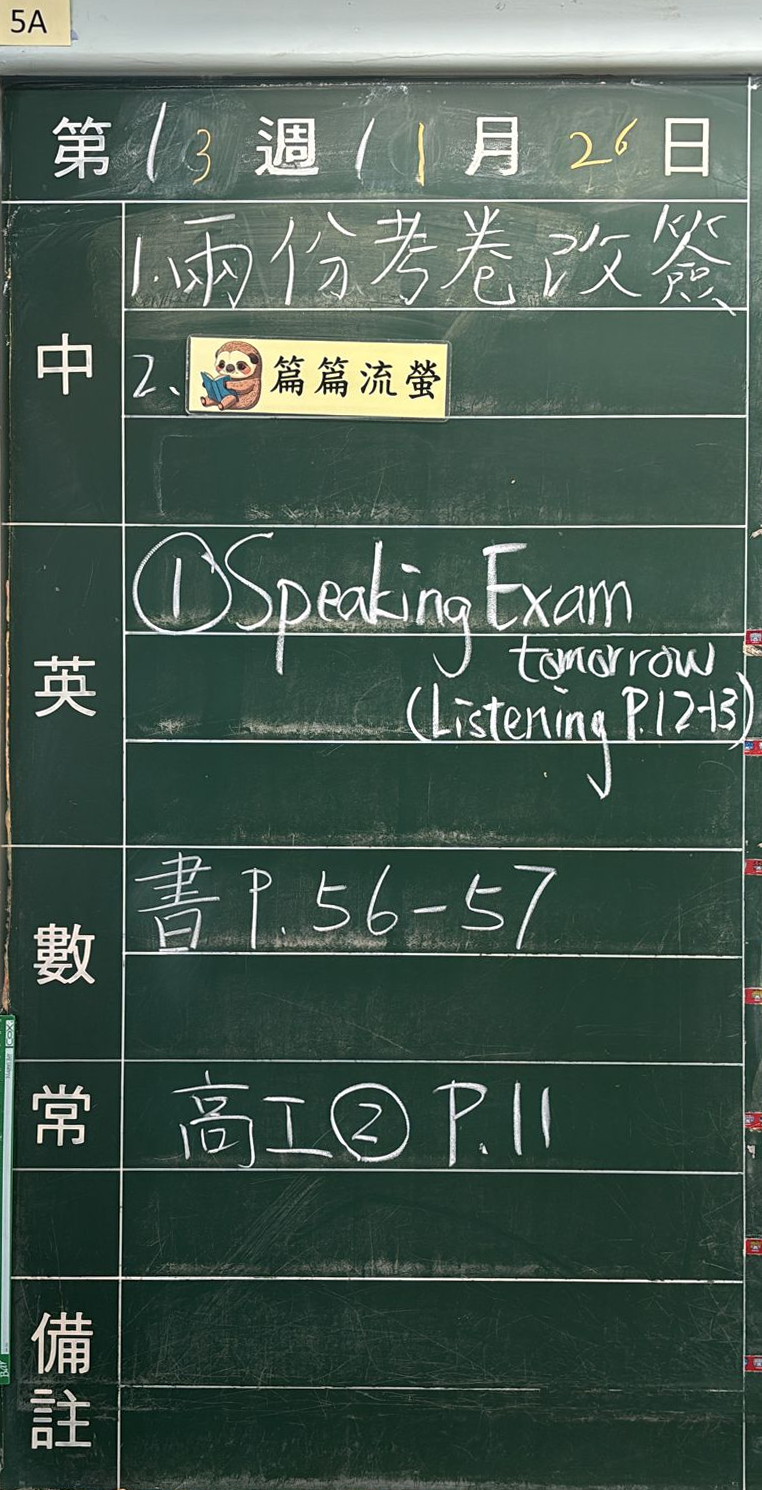 5A
第13週11月26日
中
1.兩份考卷改簽
2、篇篇流螢
英
①Speaking Exam
tomorrow
(Listening P.12-13)
數
書P.56-57
常
高工② P.11
備註